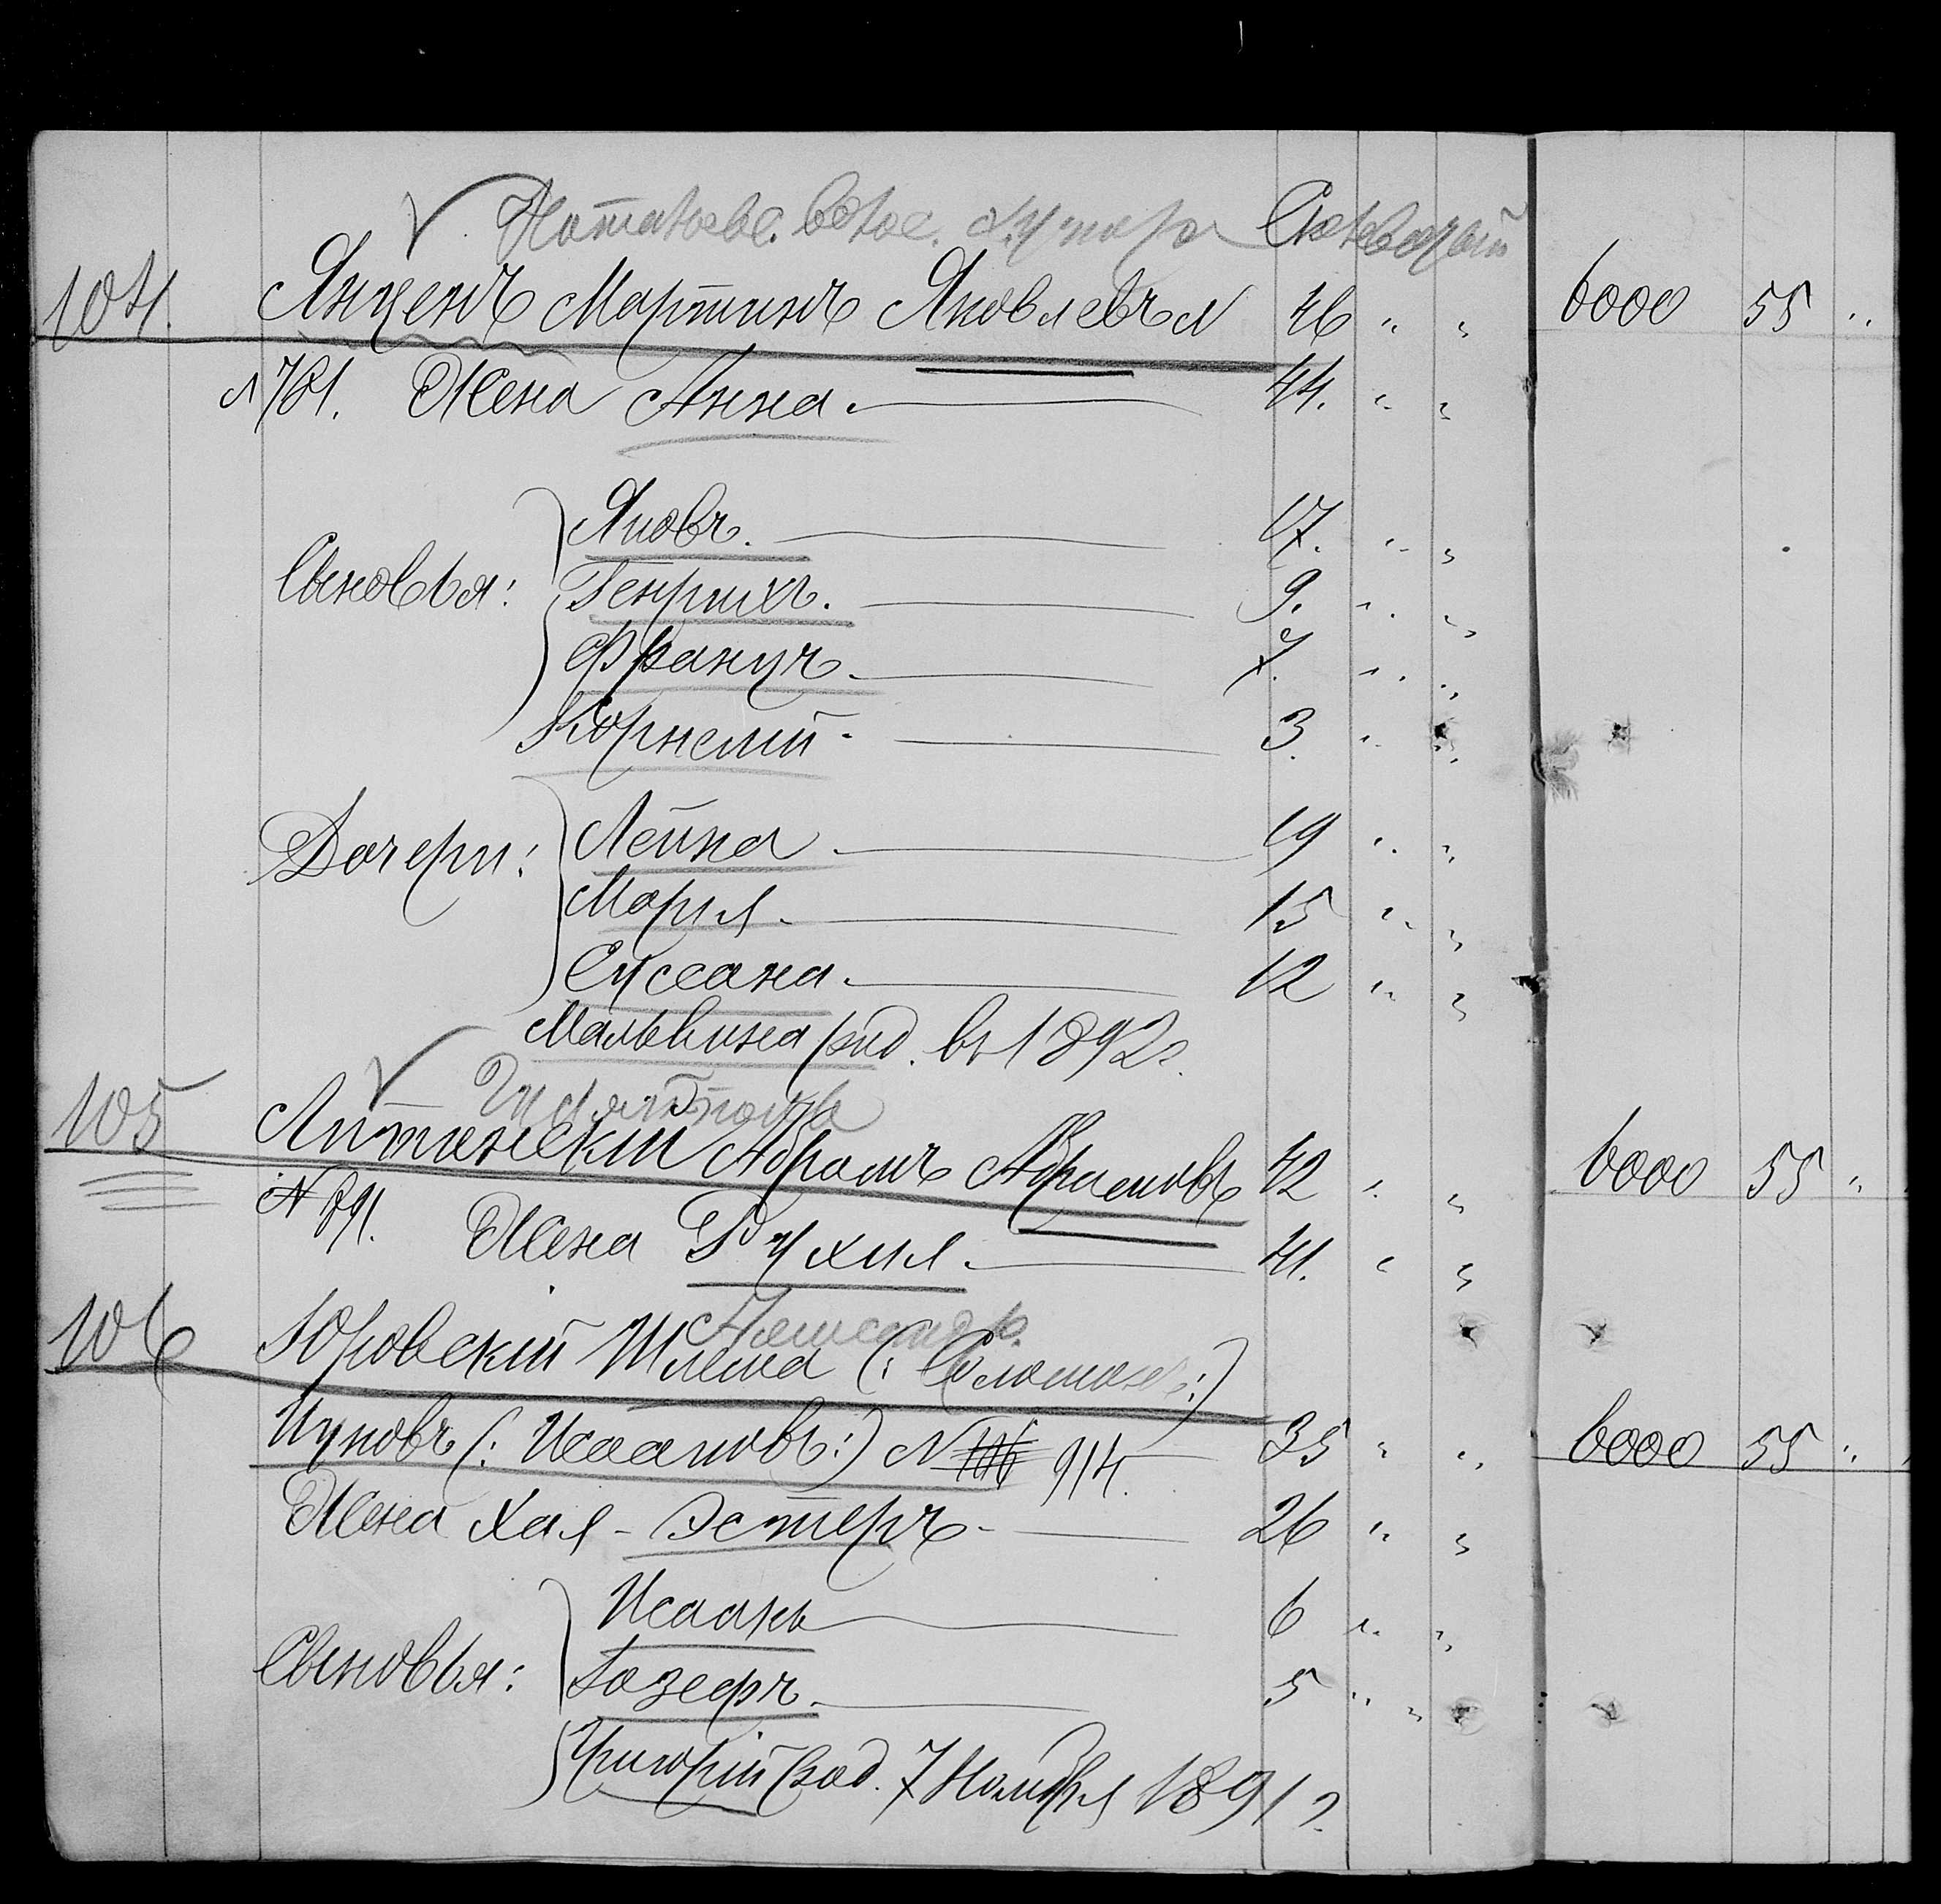 волос. хутор
104. Янценъ Мартинъ Яковлевъ 46 " " 6000 55 "
№ 781. Жена Анна. 44. " "
Яковъ. 17. " "
Сыновья: Генрихъ. 9. " "
Францъ. 7. " "
Корнелій. 3. " "
Лейна 19 " "
Дочери: Марія. 15 " "
Сусанна. 12 " "
Мальвина род. въ 1892 г.
105 Литинскій Абрамъ Абрамовъ 42 " " 6000 55 "
№ 891. Жена Рухля. 41. " "
106 Юровскій Шлема (: Соломонъ :)
Ицковъ (: Исааковъ :) № 914. 35 " " 6000 55 "
Жена Хая - Эстеръ - 26 " "
Исаакъ 6 " "
Сыновья: Іозефъ. 5 " "
Григорій род. 7 Ноября 1891 г.